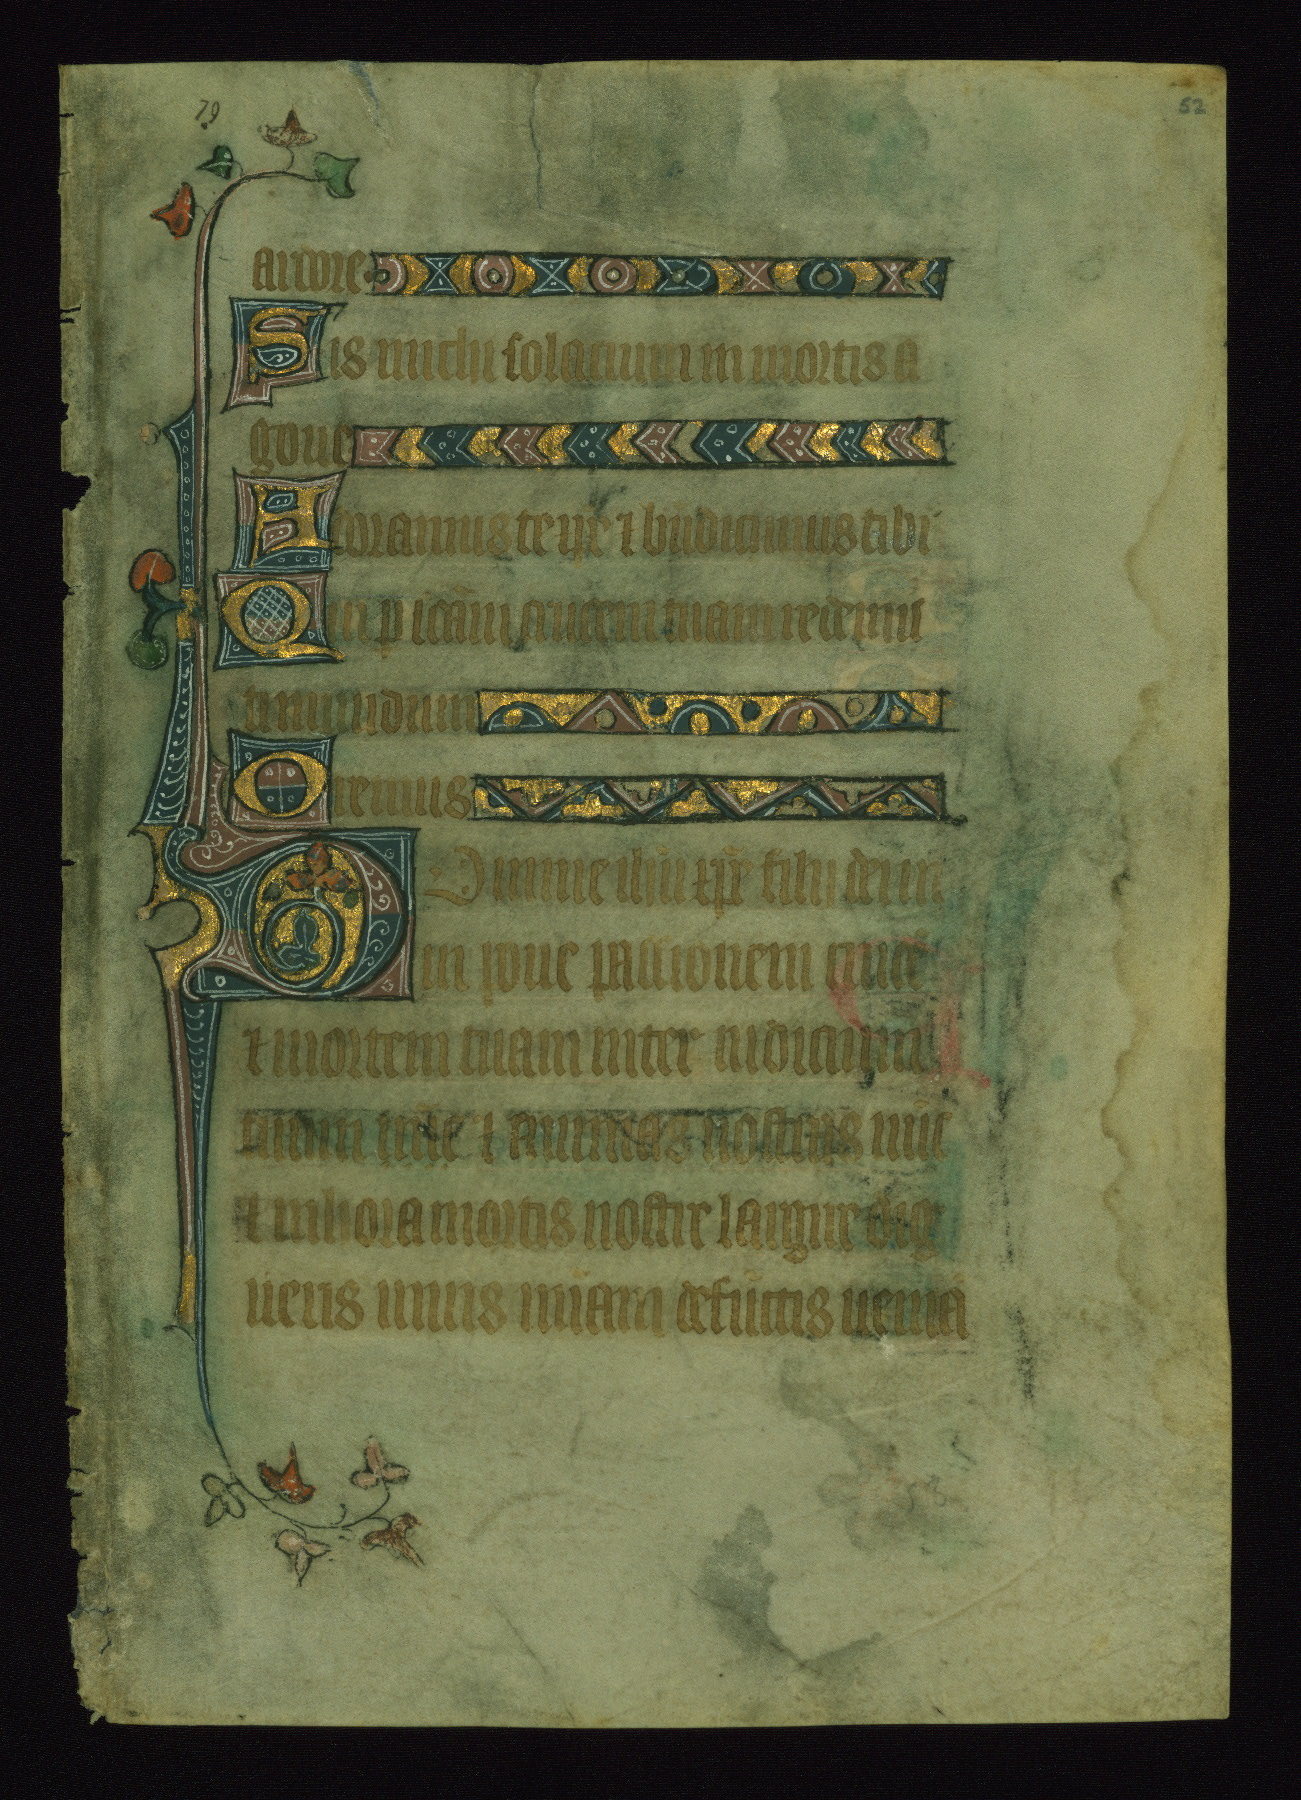 79
52
ardore.
Sis michi solacium in mortis a
gone
Adoramus te xp̄e ⁊ bn̄dicimus tibi
Quia p sc̄am crucem tuam redemis
ti mundum
Oremus
Domine ihū xp̄e fili dei ui
ui pone passionem cruce
⁊ mortem tuam inter iudicium
tuum ⁊ animas nostras nūc
⁊ in hora mortis nostre largire dig
neris uiuis miam defūctis ueniā